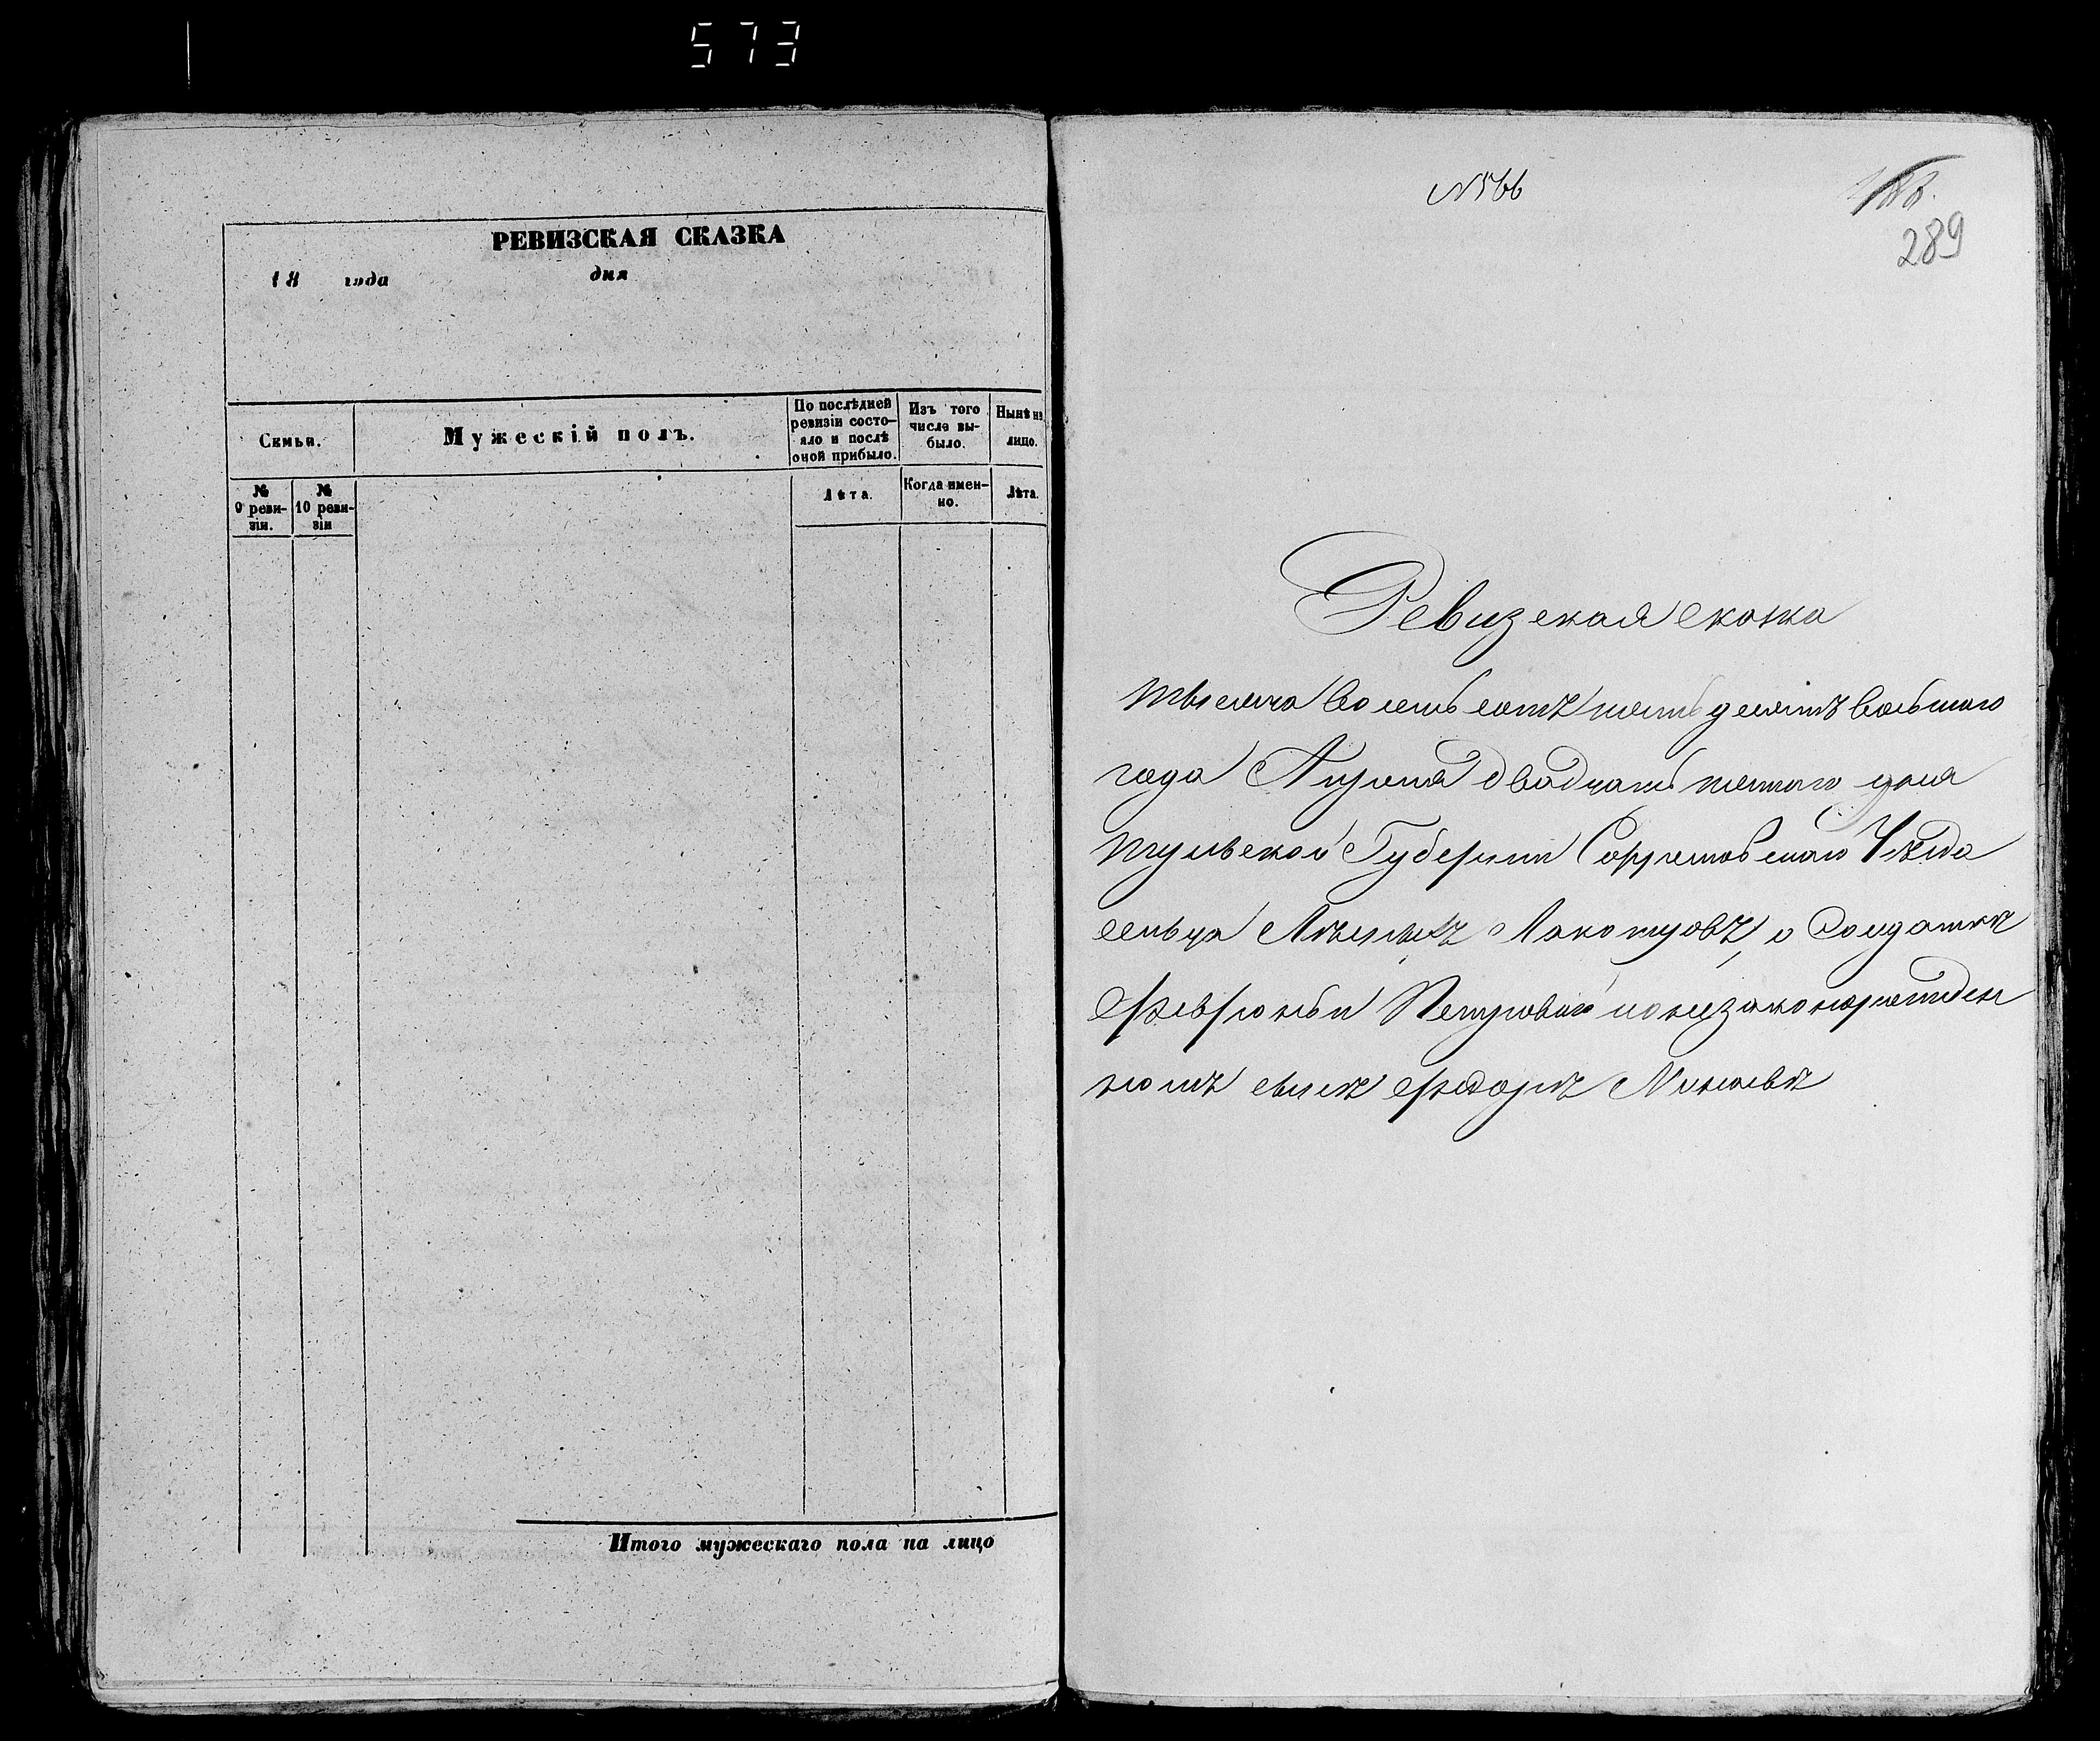 573
РЕВИЗСКАЯ СКАЗКА
18 года дня
Семьи.
Мужескій полъ.
По послѣдней ревизіи состо-
яло и послѣ оной прибыло.
Изъ того числа вы-
было.
Нынѣ на лицо.
№ 9 реви-
зіи.
№ 10 реви-
зіи
Лѣта.
Когда имен-
но.
Лѣта.
Итого мужескаго пола на лицо
№66
188.
289
Ревизская скаска
тысеча восемь сотъ пять десятъ восьмаго
года Апреля двадцать пятого дня
тульской Губернии Уѣзда
сельца и Солдатки
Петровой незаконорожден
номъ сынѣ Федорѣ